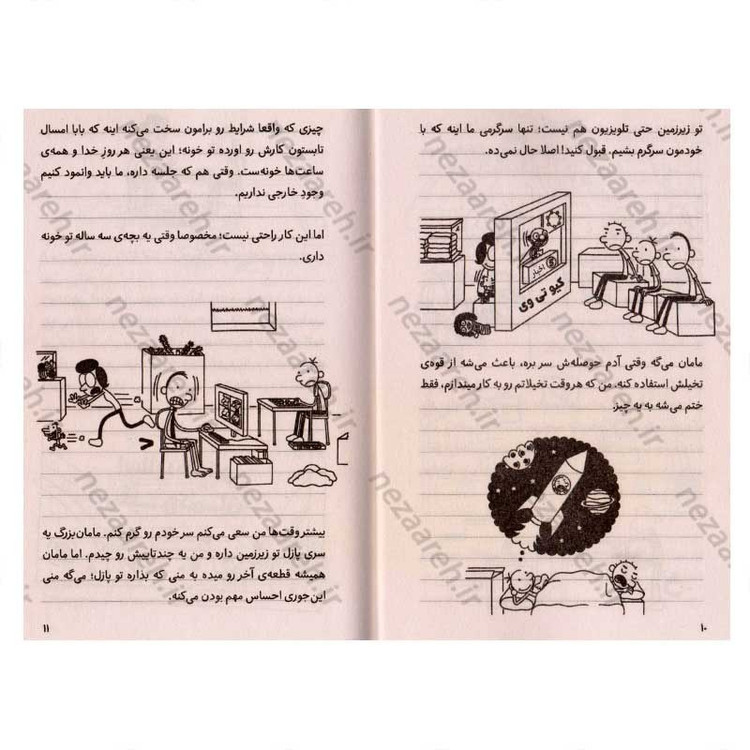 تو زیرزمین حتی تلویزیون هم نیست؛ تنها سرگرمی ما اینه که با
خودمون سرگرم بشیم. قبول کنید! اصلا حال نمی‌ده.
اخبار
کیو تی وی
مامان می‌گه وقتی آدم حوصله‌ش سر بره، باعث می‌شه از قوه‌ی
تخیلش استفاده کنه. من که هروقت تخیلاتم رو به کار میندازم، فقط
ختم می‌شه به یه چیز.
۱۰
چیزی که واقعا شرایط رو برامون سخت می‌کنه اینه که بابا امسال
تابستون کارش رو اورده تو خونه؛ این یعنی هر روزِ خدا و همه‌ی
ساعت‌ها خونه‌ست. وقتی هم که جلسه داره، ما باید وانمود کنیم
وجودِ خارجی نداریم.
اما این کار راحتی نیست؛ مخصوصا وقتی یه بچه‌ی سه ساله تو خونه
داری.
بیشتر وقت‌ها من سعی می‌کنم سر خودم رو گرم کنم. مامان‌بزرگ یه
سری پازل تو زیرزمین داره و من یه چندتاییش رو چیدم. اما مامان
همیشه قطعه‌ی آخر رو میده به منی که بذاره تو پازل؛ می‌گه منی
این‌جوری احساس مهم بودن می‌کنه.
۱۱
nezaareh.ir